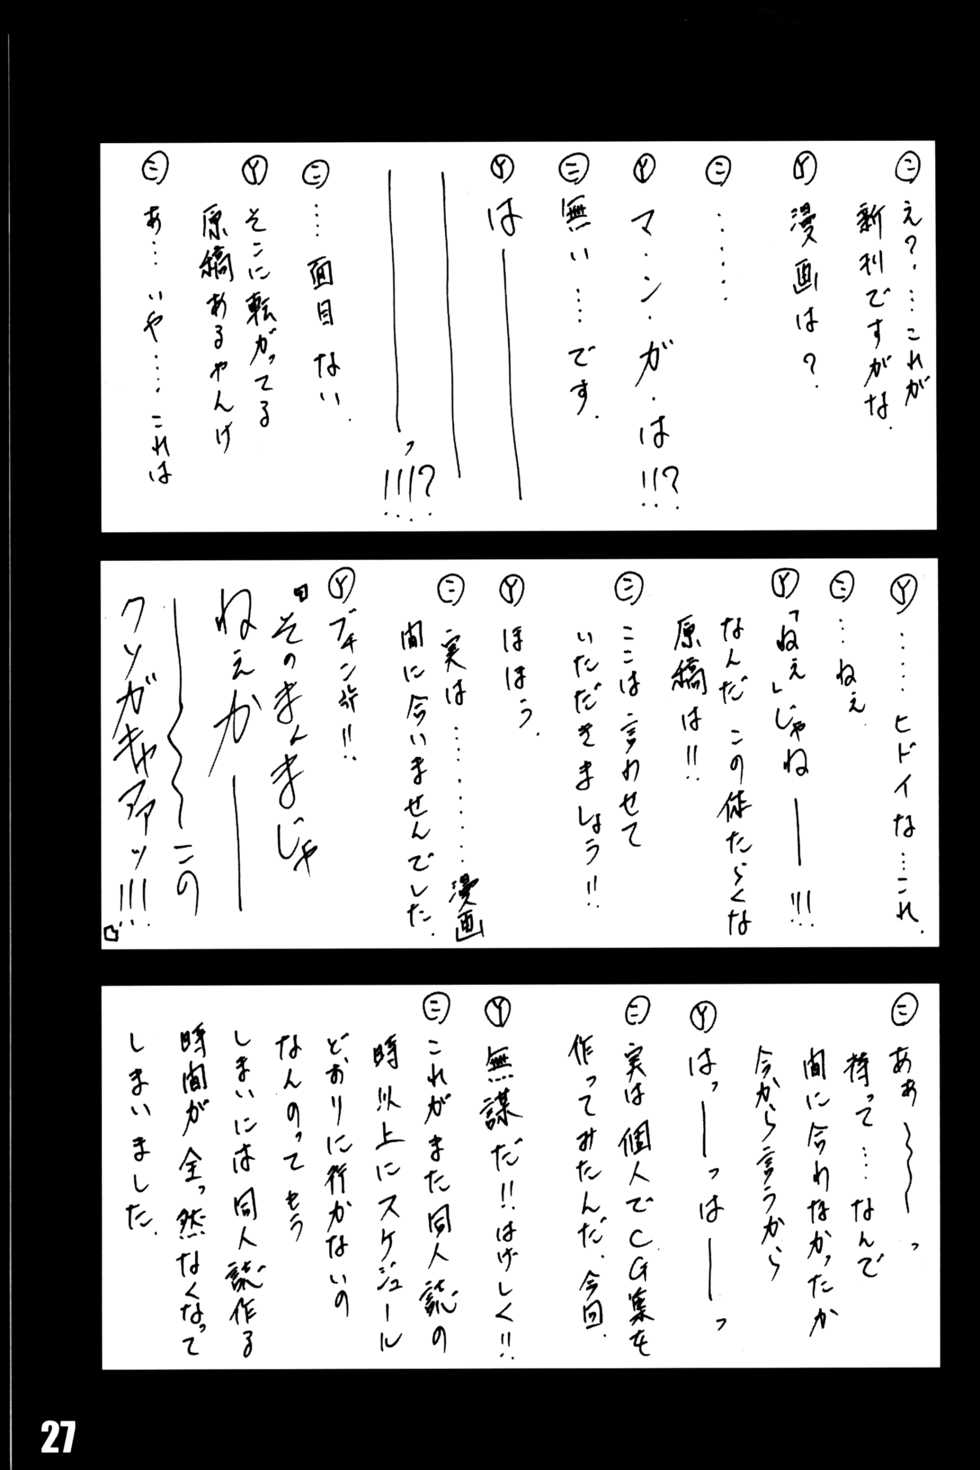 ㋥ え?.…これが
新刊ですがな.
Ⓨ 漫画は?.
㋥ ‥‥‥.
Ⓨ マ・ン・ガ・は!!?
㋥ 無い…です.
Ⓨ は———
———
———っ!!!?
㋥ …面目ない.
Ⓨ そこに転がってる
原稿あるやんけ
㋥ あ…いや…これは
Ⓨ ……ヒドイな…これ.
㋥ …ねえ.
Ⓨ「ねえ」じゃね——!!!
なんだこの体たらくな
原稿は!!
㋥ ここは言わせて
いただきましょう!!
Ⓨ ほほう.
㋥ 実は…………漫画
間に合いませんでした.
Ⓨ ブチン!!
『そのまんまじゃ
ねえか——
——〜〜この
クソガキャアァッ!!!』
㋥ あぁ〜〜〜っ
待って…なんで
間に合わなかったか
今から言うから
Ⓨ はっ——っは——っ
㋥ 実は個人でCG集を
作ってみたんだ.今回.
Ⓨ 無謀だ!!はげしく!!
㋥ これがまた同人誌の
時以上にスケジュール
どおりに行かないの
なんのってもう
しまいには同人誌作る
時間が全っ然なくなって
しまいました.
27